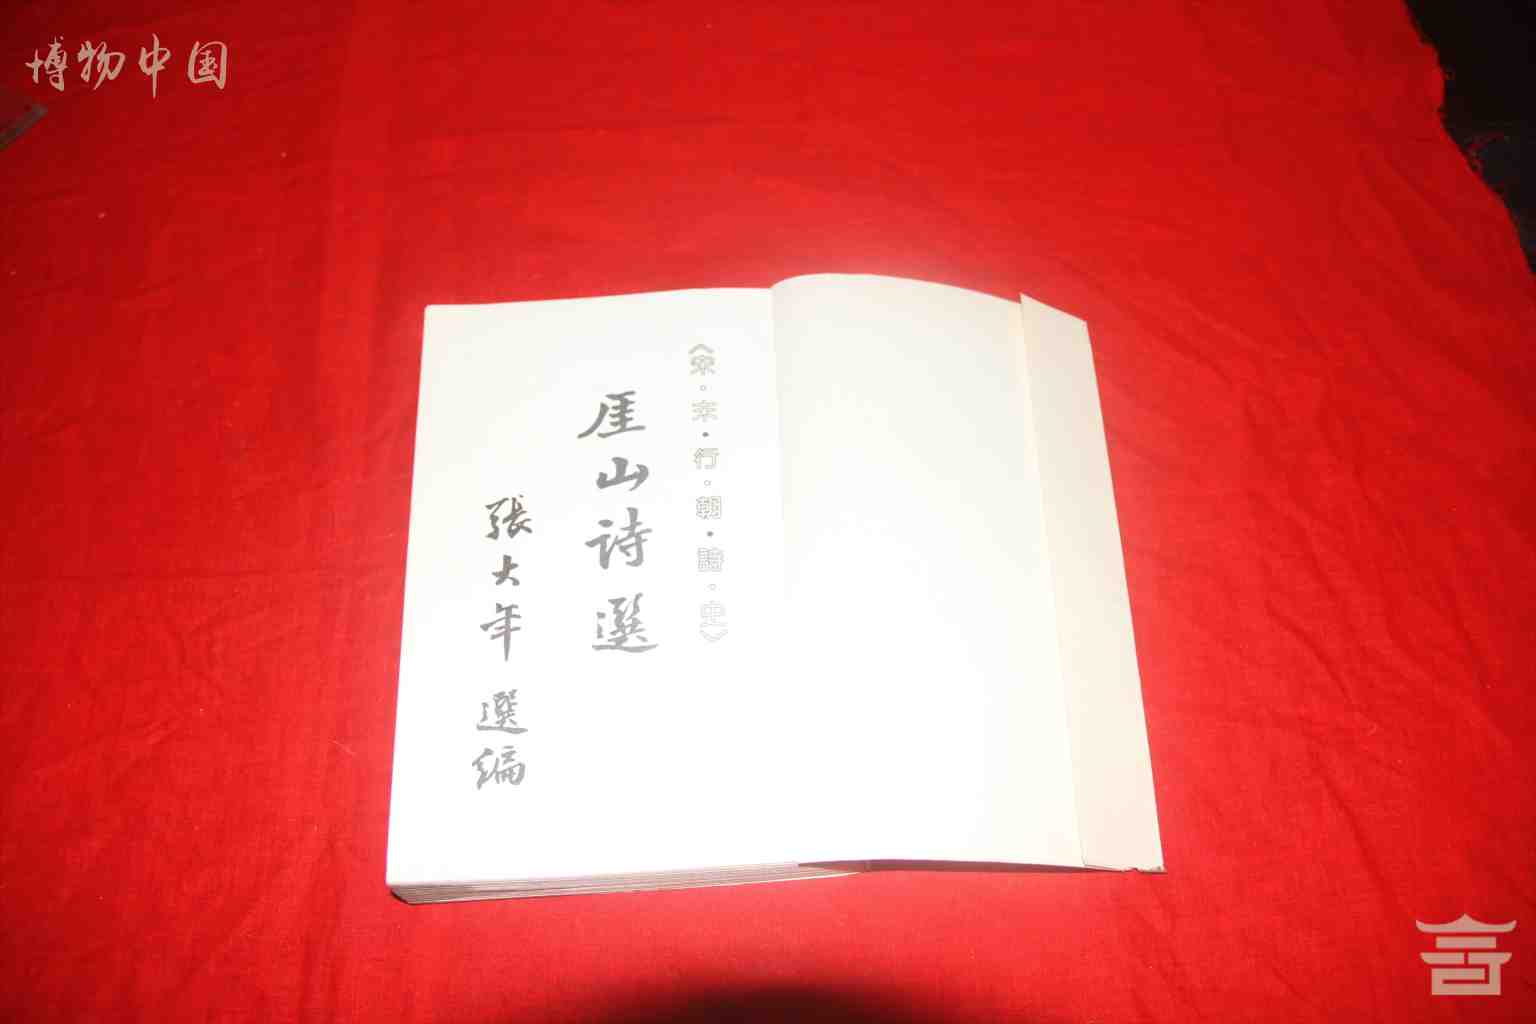 博物中国
《宋·末·行·朝·詩·史》
厓山诗選
張大年 選编